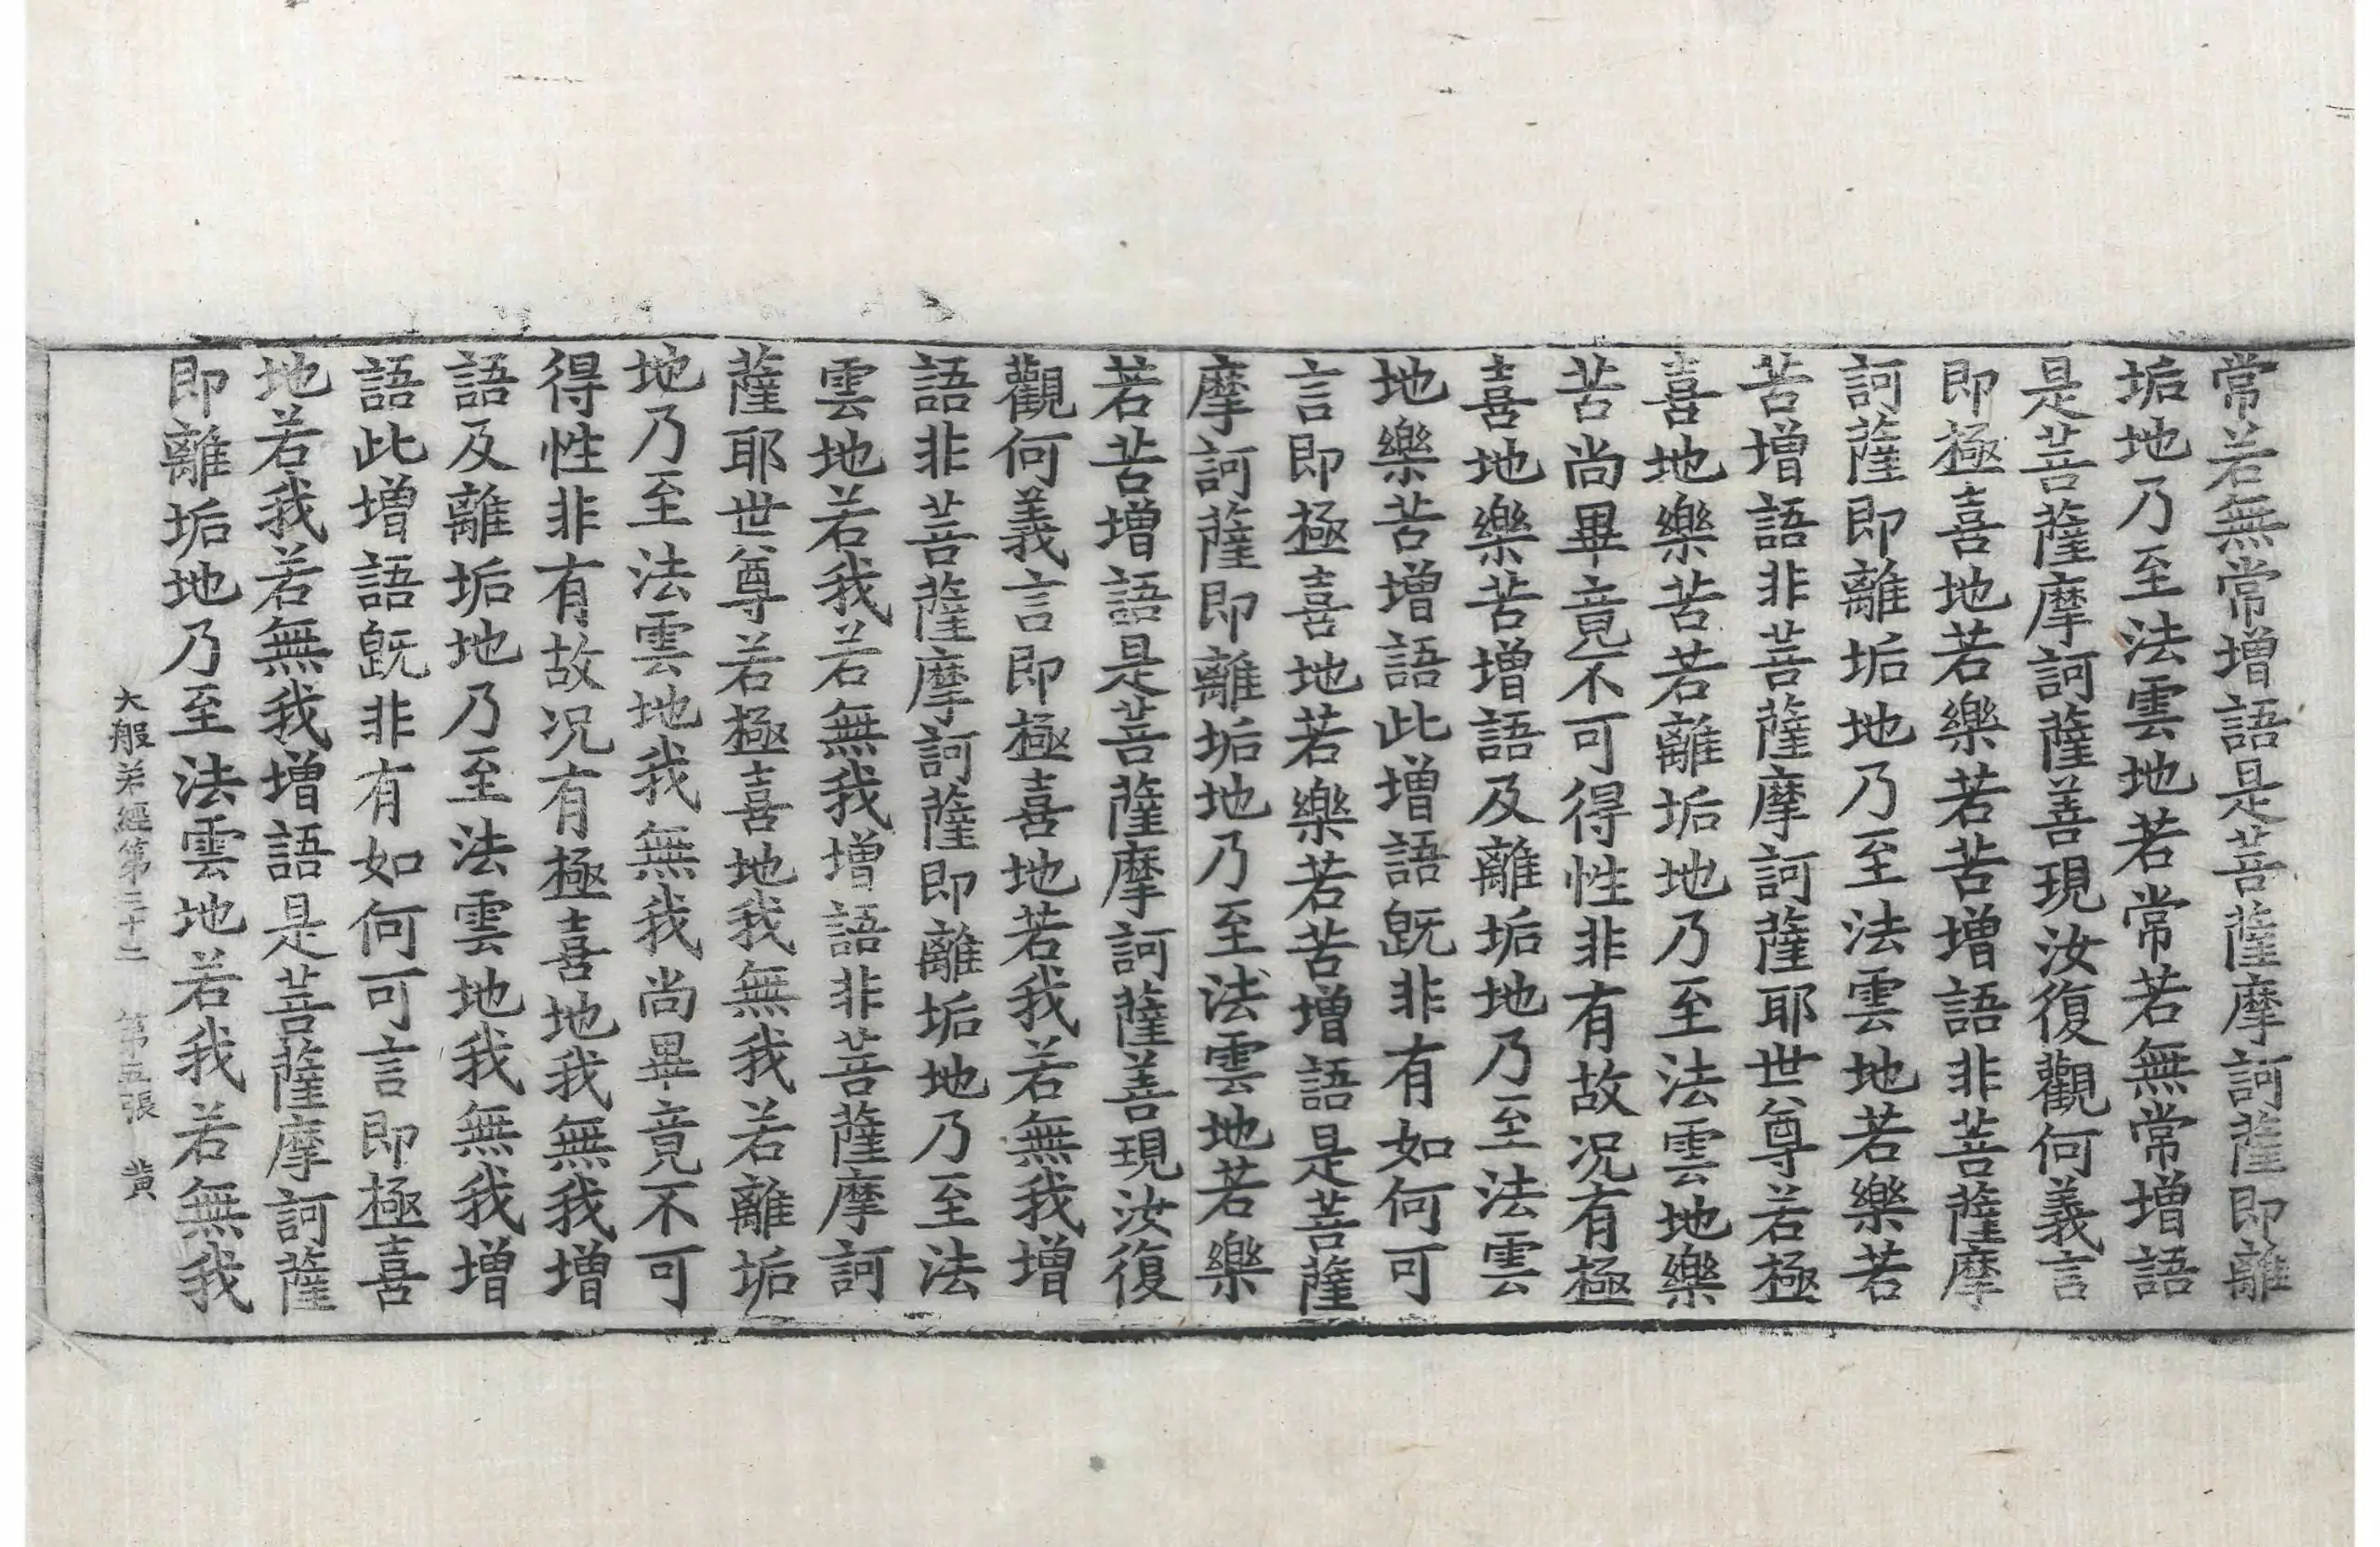 常若無常增語是菩薩摩訶薩即離
垢地乃至法雲地若常若無常增語
是菩薩摩訶薩善現汝復觀何義言
即極喜地若樂若苦增語非菩薩摩
訶薩即離垢地乃至法雲地若樂若
苦增語非菩薩摩訶薩耶世尊若極
喜地樂苦若離垢地乃至法雲地樂
苦尚畢竟不可得性非有故况有極
喜地樂苦增語及離垢地乃至法雲
地樂苦增語此增語旣非有如何可
言即極喜地若樂若苦增語是菩薩
摩訶薩即離垢地乃至法雲地若樂
若苦增語是菩薩摩訶薩善現汝復
觀何義言即極喜地若我若無我增
語非菩薩摩訶薩即離垢地乃至法
雲地若我若無我增語非菩薩摩訶
薩耶世尊若極喜地我無我若離垢
地乃至法雲地我無我尚畢竟不可
得性非有故况有極喜地我無我增
語及離垢地乃至法雲地我無我增
語此增語旣非有如何可言即極喜
地若我若無我增語是菩薩摩訶薩
即離垢地乃至法雲地若我若無我
大般若經第三十二 第五張 黃